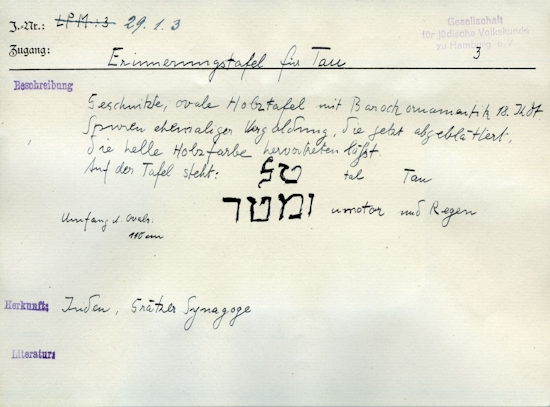 J.-Nr.: LPM:3 29.1.3
Gesellschaft
für jüdische Volkskunde
zu Hamburg e.V.
Zugang:
3
Erinnerungstafel für Tau
Beschreibung
Geschnitzte, ovale Holztafel mit Barockornamentik 18. Jhdt
Spuren ehemaliger Vergoldung, die jetzt abgeblättert,
die helle Holzfarbe hervortreten läßt.
Auf der Tafel steht: טל tal Tau
ומטר umotor und Regen
Umfang d. Ovals.
110 cm
Herkunft: Juden, Grätzer Synagoge
Literatur: